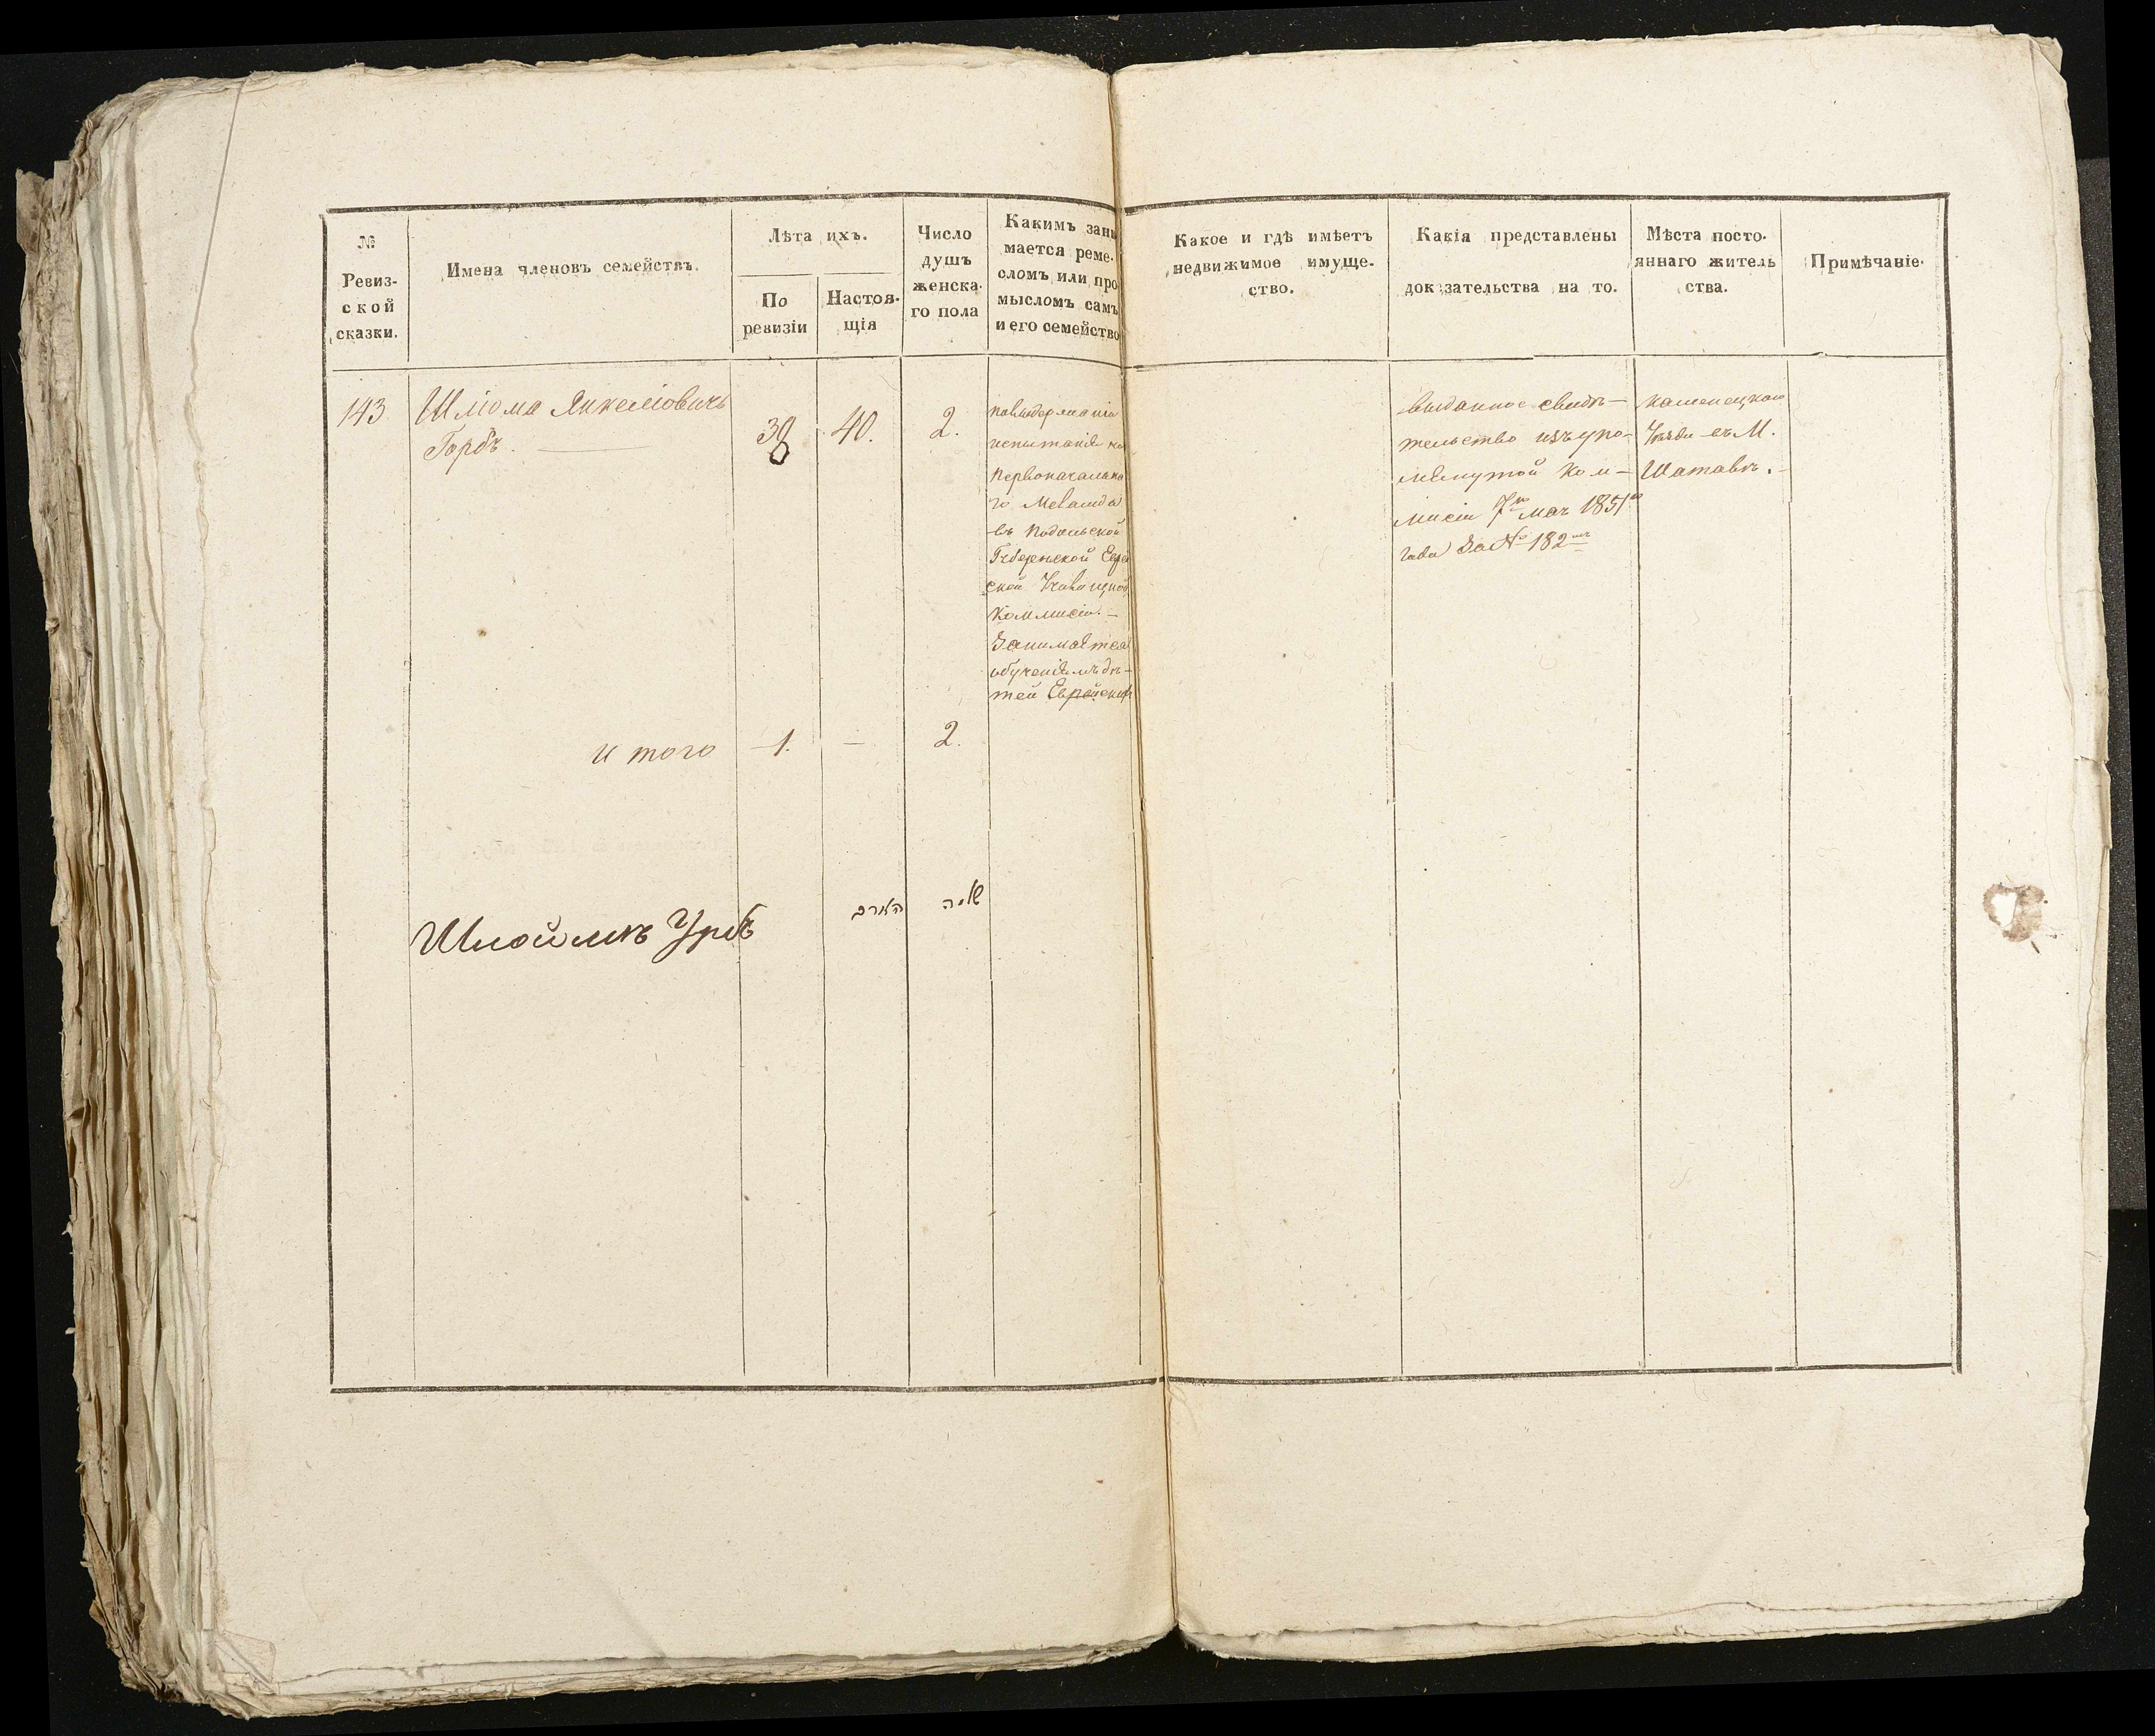 №
Ревиз-
ской
сказки.
Имена членовъ семействъ.
Лѣта ихъ.
По
ревизіи
Настоя-
щія
Число
душъ
женска-
го пола
Какимъ зани
мается реме-
сломъ или про
мысломъ самъ
и его семейство
Какое и гдѣ имѣетъ
недвижимое имуще-
ство.
Какія представлены
доказательства на то.
Мѣста посто-
яннаго житель
ства.
Примѣчаніе.
143.
Шліома Янкеліовичъ
Горбъ.
38
40.
2.
По выдержаніи
испытанія на
Первоначальна
го Меламда
въ Подольской
Губернской Еврей
ской
Коммисіи. –
Занимается
обученіемъ дѣ-
тей Еврейских
выданное свидѣ-
тельство изъ упо-
мянутой Ком-
мисіи 7го мая 1851го
года За № 182
Каменецкаго
Уѣзда въ М.
Шатавѣ. –
и того
– 1.
–
2.
Шлойме Урбъ